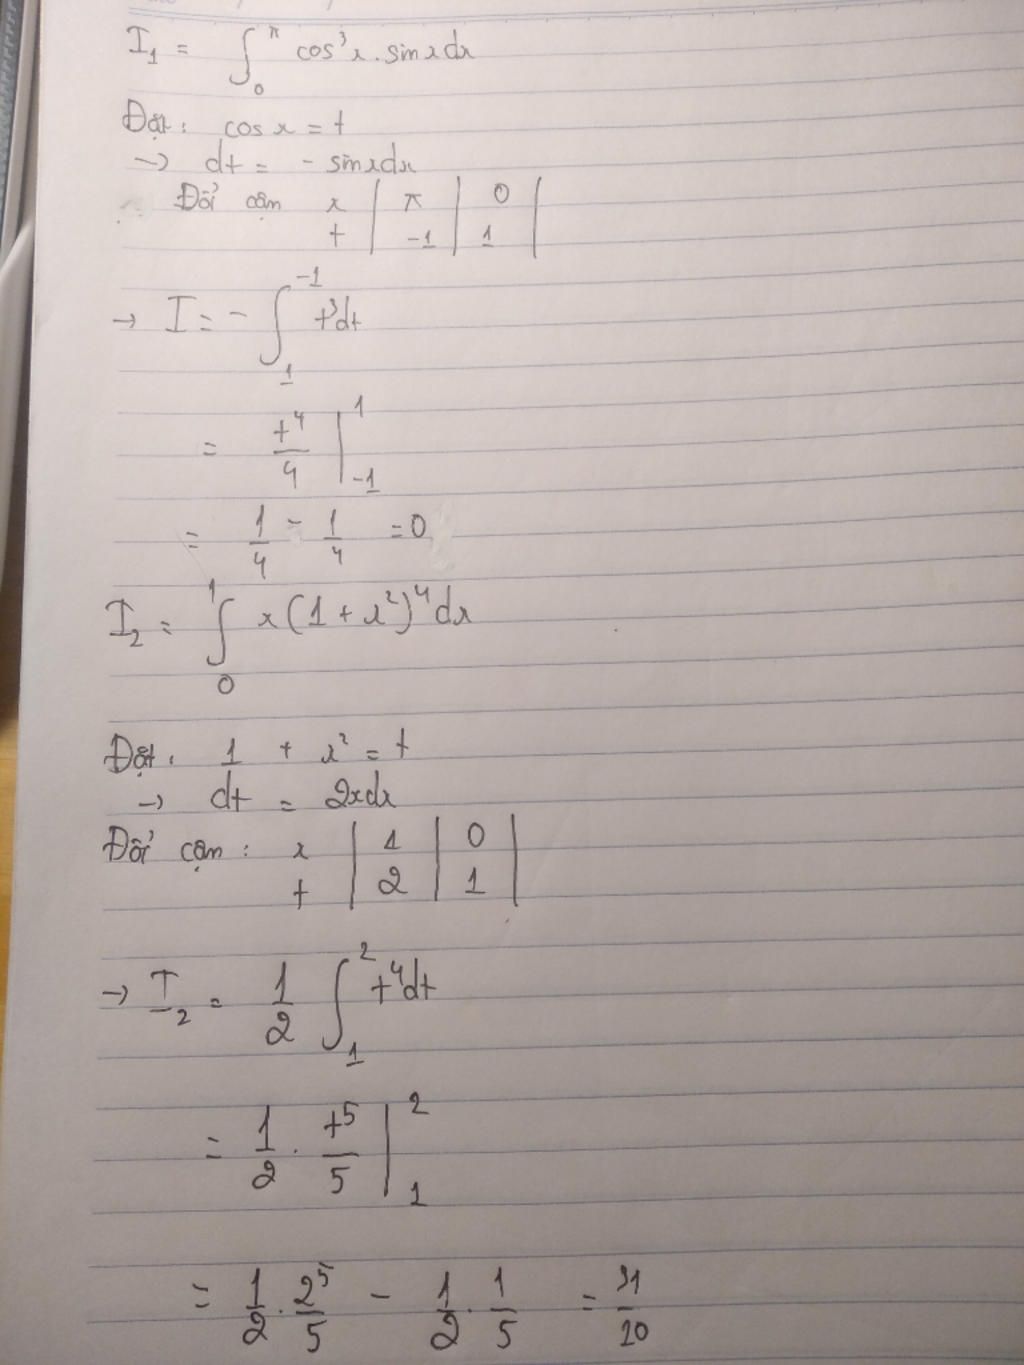 I₁ = ∫₀^π cos³x . sinxdx
Đặt: cos x = t
→ dt = - sinxdx
Đổi cận x | π | 0 |
t | -1 | 1 |
→ I = - ∫₁^-1 t³dt
= t⁴/4 |₋₁^1
= 1/4 - 1/4 = 0
I₂ = ∫₀^1 x(1 + x²)⁴dx
Đặt: 1 + x² = t
→ dt = 2xdx
Đổi cận: x | 1 | 0 |
t | 2 | 1 |
→ I₂ = 1/2 ∫₁^2 t⁴dt
= 1/2 . t⁵/5 |₁^2
= 1/2 . 2⁵/5 - 1/2 . 1/5 = 31/10